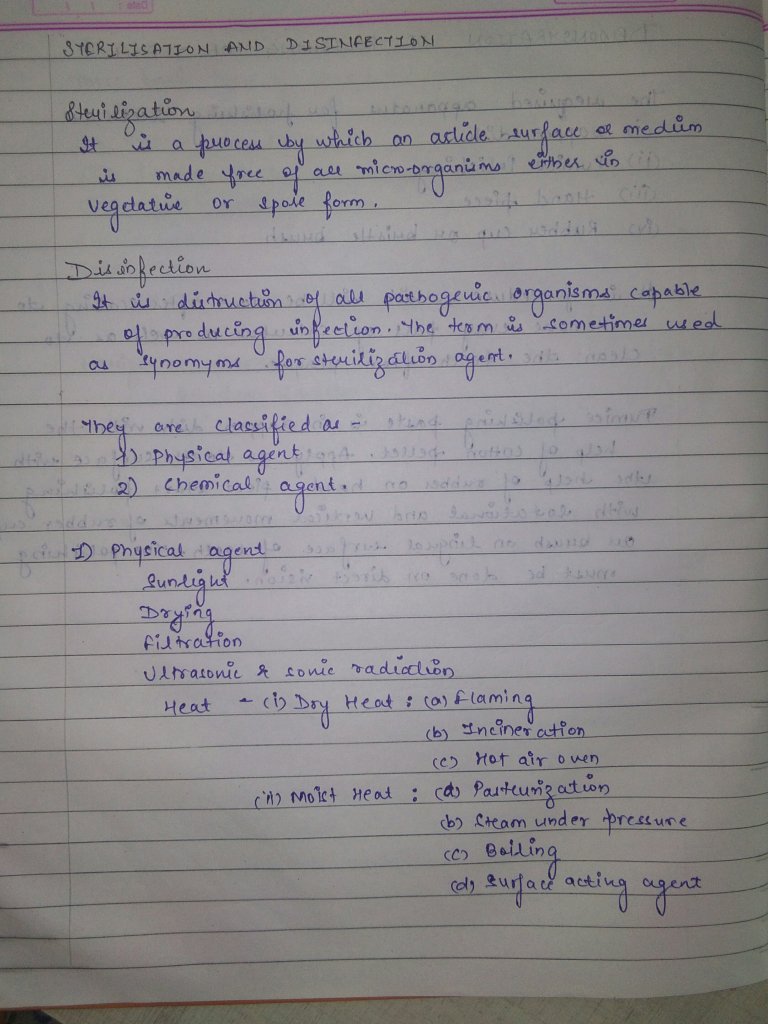 STERILISATION AND DISINFECTION
Sterilization
It is a process by which an article surface or medium
is made free of all micro-organisms either in
vegetative or spore form.
Disinfection
It is distruction of all pathogenic organisms capable
of producing infection. The term is sometimes used
as synomyms for sterilization agent.
They are classified as -
1) Physical agent
2) Chemical agent.
1) Physical agent
Sunlight
Drying
Filtration
Ultrasonic & sonic radiation
Heat - (i) Dry Heat : (a) Flaming
(b) Incineration
(c) Hot air oven
(ii) Moist Heat : (a) Pasteurization
(b) Steam under pressure
(c) Boiling
(d) Surface acting agent